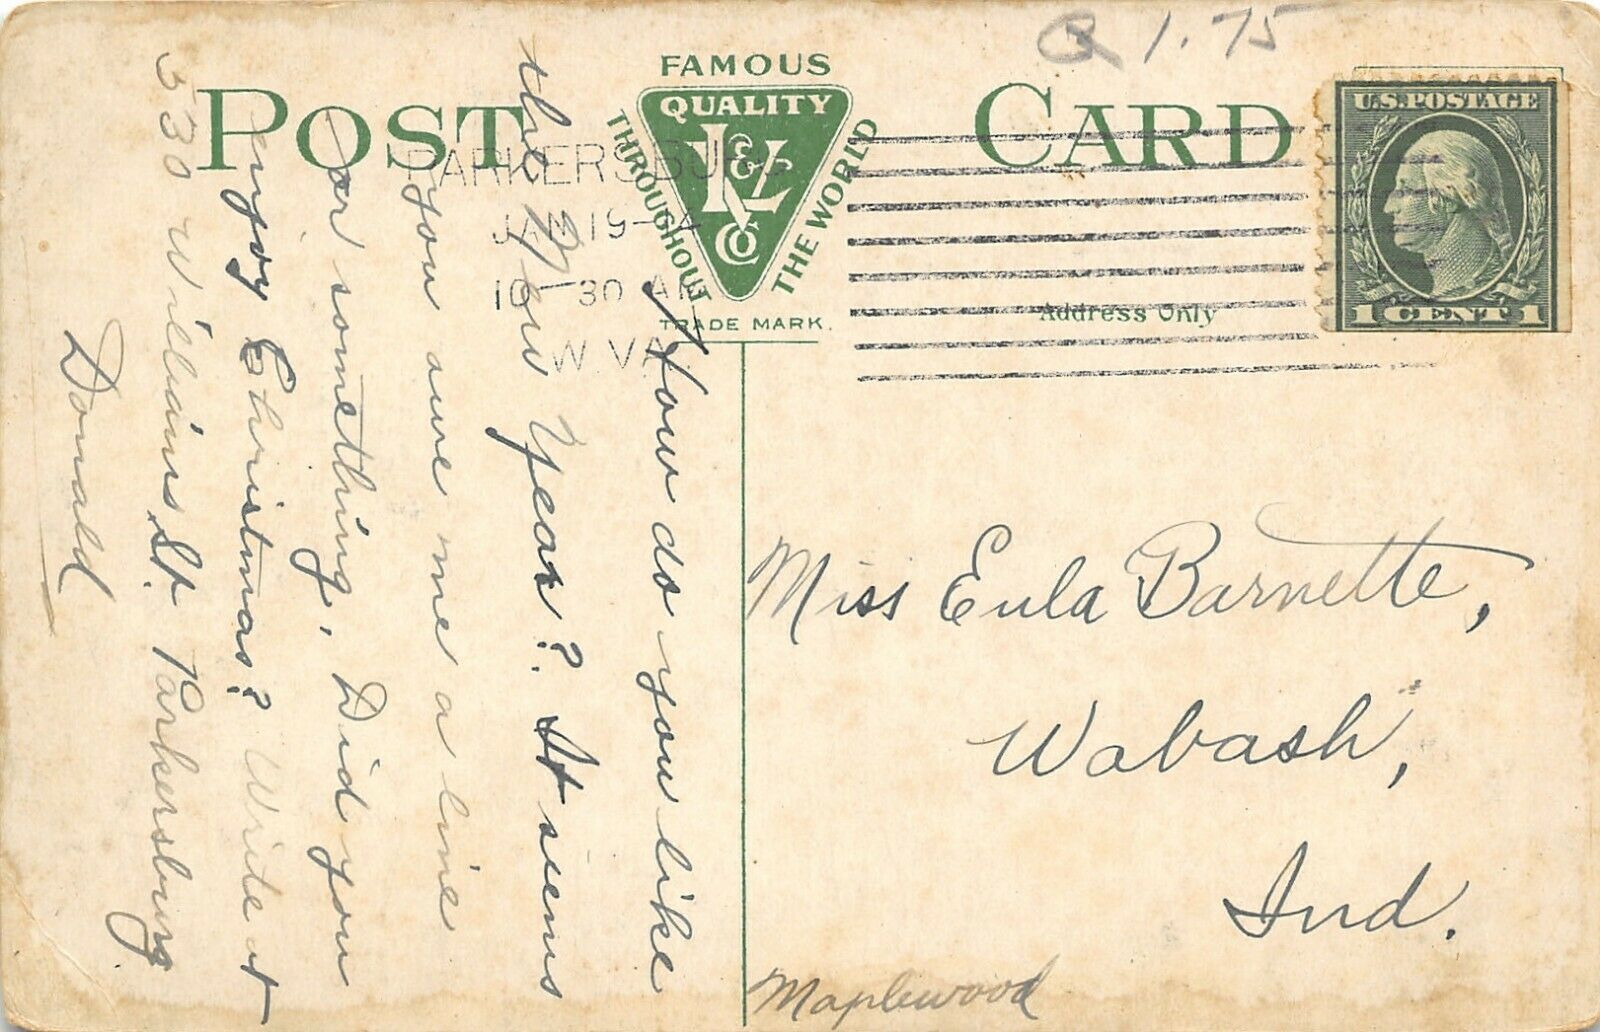 R 1.75
POST CARD
FAMOUS
QUALITY
THROUGHOUT
THE WORLD
K & L Co
TRADE MARK.
PARKERSBURG
JAN 19
10-30 AM
W. VA.
U.S. POSTAGE
1 CENT 1
Address Only
How do you like
the New Year? It seems
you owe me a line
or something, Did you
enjoy Christmas? Write at
330 Williams St. Parkersburg
Donald
Miss Eula Barnette,
Wabash,
Ind.
Maplewood